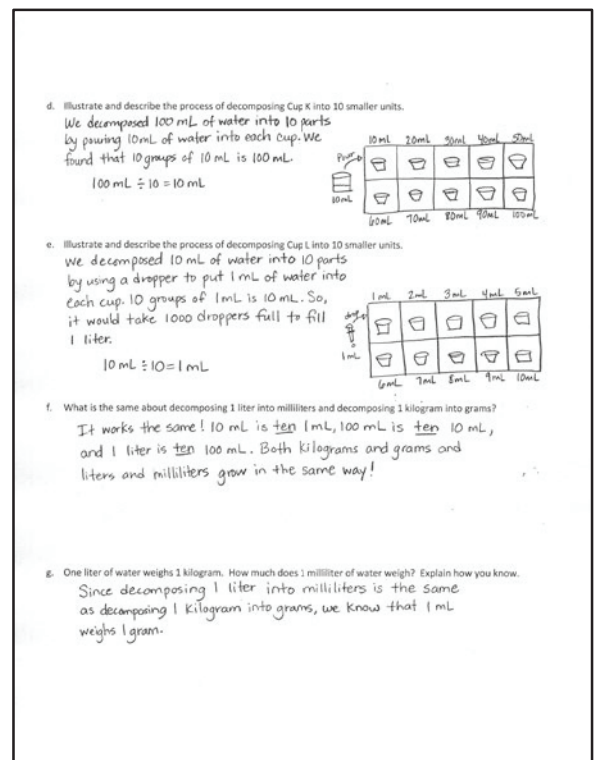 d. Illustrate and describe the process of decomposing Cup K into 10 smaller units.
We decomposed 100 mL of water into 10 parts
by pouring 10mL of water into each cup. We
found that 10 groups of 10 mL is 100 mL.
100 mL ÷ 10 = 10 mL
10 mL 20mL 30mL 40mL 50mL
Pour
10mL
60mL 70mL 80mL 90mL 100mL
e. Illustrate and describe the process of decomposing Cup L into 10 smaller units.
We decomposed 10 mL of water into 10 parts
by using a dropper to put 1 mL of water into
each cup. 10 groups of 1mL is 10 mL. So,
it would take 1000 droppers full to fill
1 liter.
10 mL ÷ 10 = 1 mL
1 mL 2mL 3mL 4mL 5mL
1mL
6mL 7mL 8mL 9mL 10mL
f. What is the same about decomposing 1 liter into milliliters and decomposing 1 kilogram into grams?
It works the same! 10 mL is ten 1mL, 100 mL is ten 10 mL,
and 1 liter is ten 100 mL. Both kilograms and grams and
liters and milliliters grow in the same way!
g. One liter of water weighs 1 kilogram. How much does 1 milliliter of water weigh? Explain how you know.
Since decomposing 1 liter into milliliters is the same
as decomposing 1 kilogram into grams, we know that 1 mL
weighs 1 gram.